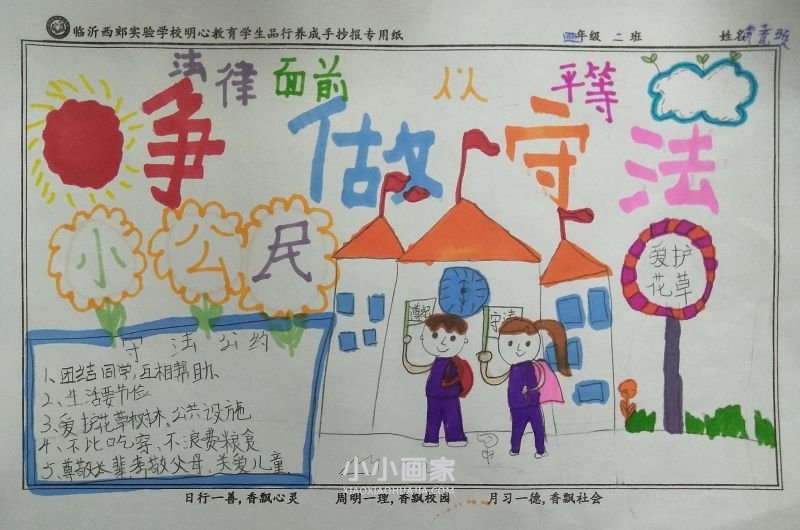 临沂西郊实验学校明心教育学生品行养成手抄报专用纸 四年级 二 班 姓名
法律面前 人人 平等
争做守法
小公民
爱护
花草
遵纪
守法
守法公约
1、团结同学,互相帮助、
2、生活要节俭
3、爱护花草树木、公共设施
4、不比吃穿、不浪费粮食
5、尊敬长辈,孝敬父母、关爱儿童、
小小画家
XIAOXIAOHUAJIA.COM
日行一善,香飘心灵 周明一理,香飘校园 月习一德,香飘社会